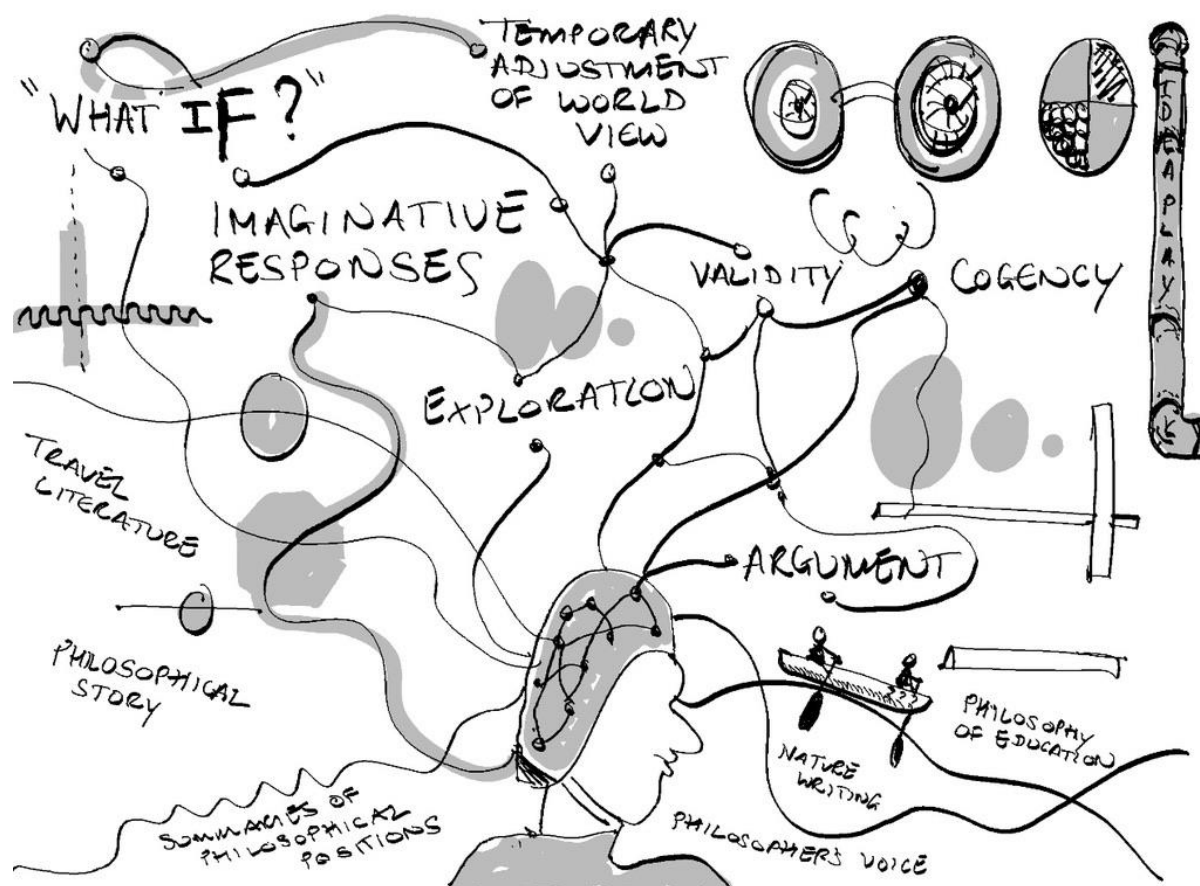 "WHAT IF?"
TEMPORARY
ADJUSTMENT
OF WORLD
VIEW
IMAGINATIVE
RESPONSES
VALIDITY
COGENCY
IDEAPLAY
EXPLORATION
TRAVEL
LITERATURE
ARGUMENT
PHILOSOPHICAL
STORY
PHILOSOPHY
OF EDUCATION
NATURE
WRITING
SUMMARIES OF
PHILOSOPHICAL
POSITIONS
PHILOSOPHER'S VOICE